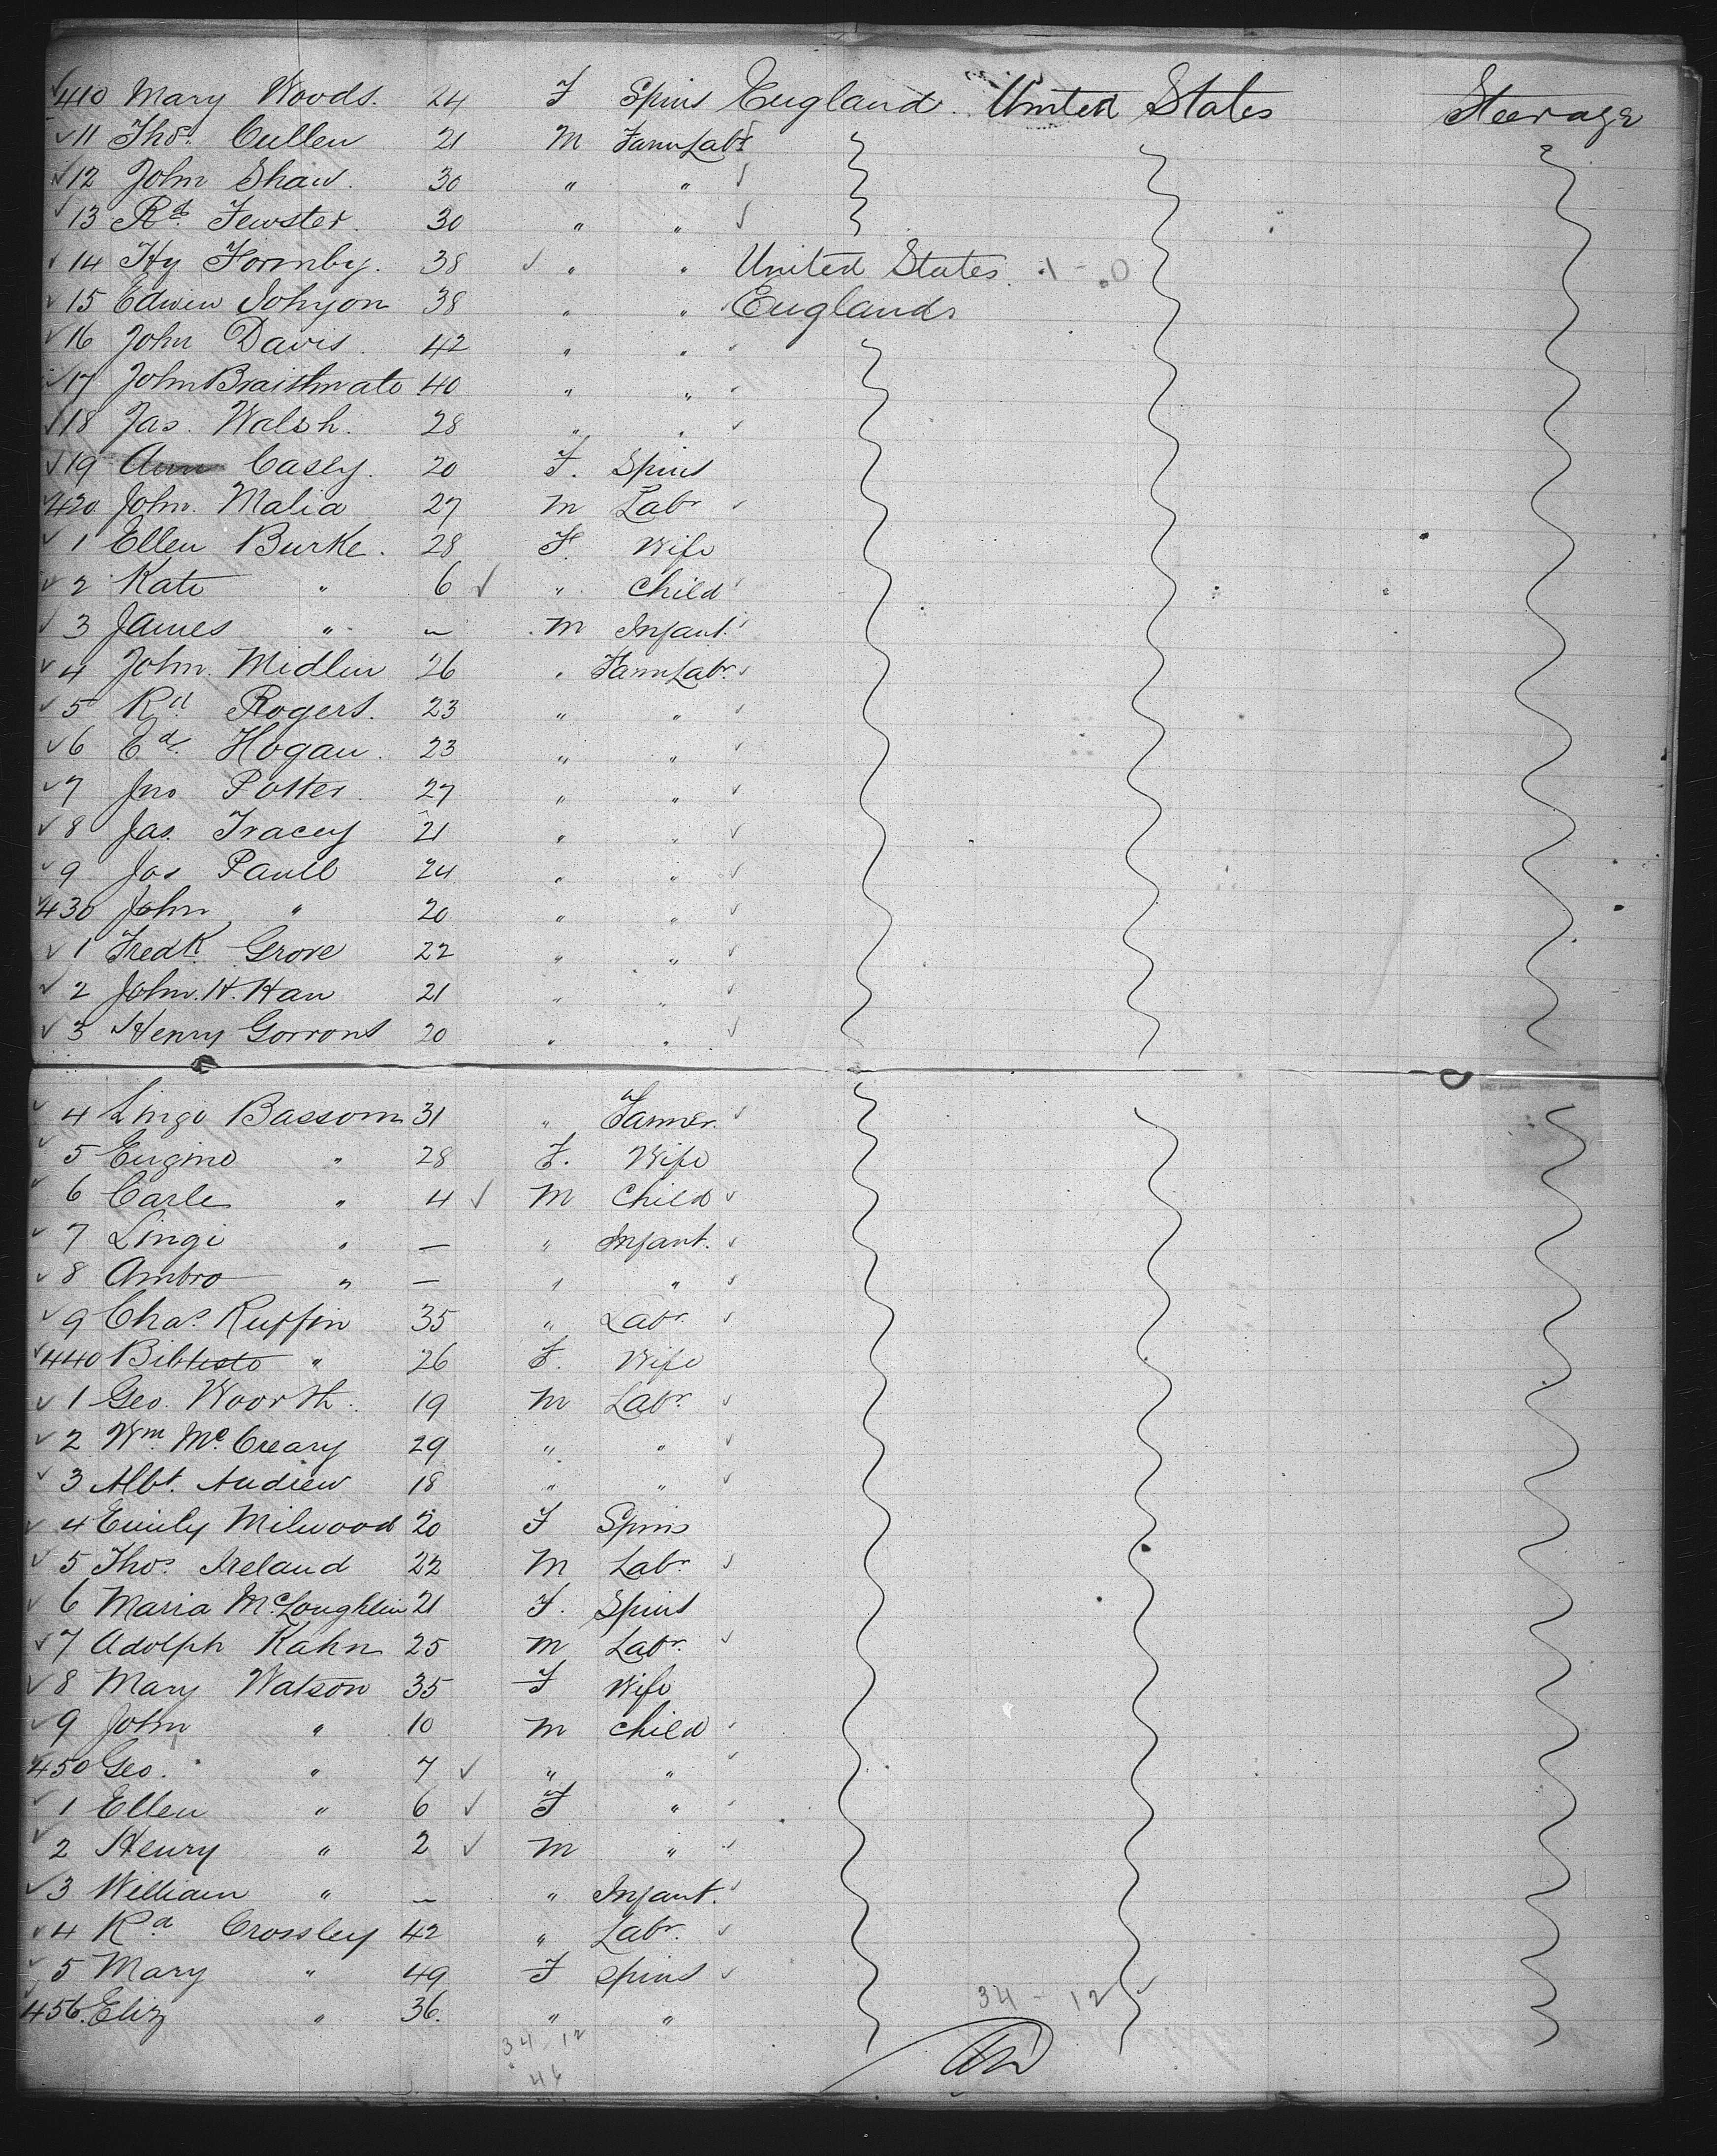 410 Mary Woods. 24 F Spins England. United States Steerage
11 Thos. Cullen 21 M Farm Labr
12 John Shaw. 30 " "
13 Rd. Fewster. 30 " "
14 Hy Formby. 38 " " United States. 1 - 0
15 Edwin Johnson 38 " " England
16 John Davis. 42 " "
17 John Braithwate 40 " "
18 Jas. Walsh. 28 " "
19 Ann Casey. 20 F. Spins
420 John. Malia 27 M Labr
1 Ellen Burke. 28 F. Wife
2 Kate " 6 " Child
3 James " — M Infant.
4 John. Midlin 26 " Farm Labr.
5 Rd. Rogers. 23 " "
6 Ed. Hogan. 23 " "
7 Jno Potter. 27 " "
8 Jas. Tracey 21 " "
9 Jos Paull 24 " "
430 John " 20 " "
1 Fredk. Grove 22 " "
2 John. H. Han 21 " "
3 Henry 20 " "
4 Bassom 31 " Farmer.
5 " 28 F. Wife
6 Carle " 4 M Child
7 Lingi " — " Infant.
8 Ambro " — " "
9 Chas. Ruffin 35 " Labr.
440 " 26 F. Wife
1 Geo. Woorth. 19 M Labr.
2 Wm. McCreary 29 " "
3 Albt. Andrew 18 " "
4 Emily Milwood 20 F Spins
5 Thos. Ireland 22 M Labr.
6 Maria McLoughlin 21 F. Spins
7 Adolph Kahn 25 M Labr.
8 Mary Watson 35 F Wife
9 John " 10 M Child
450 Geo. " 7 " "
1 Ellen " 6 F "
2 Henry " 2 M "
3 William " — " Infant.
4 Rd Crossley 42 " Labr.
5 Mary " 49 F Spins
456. Eliz " 36. " "
34 - 12
34 - 12
46